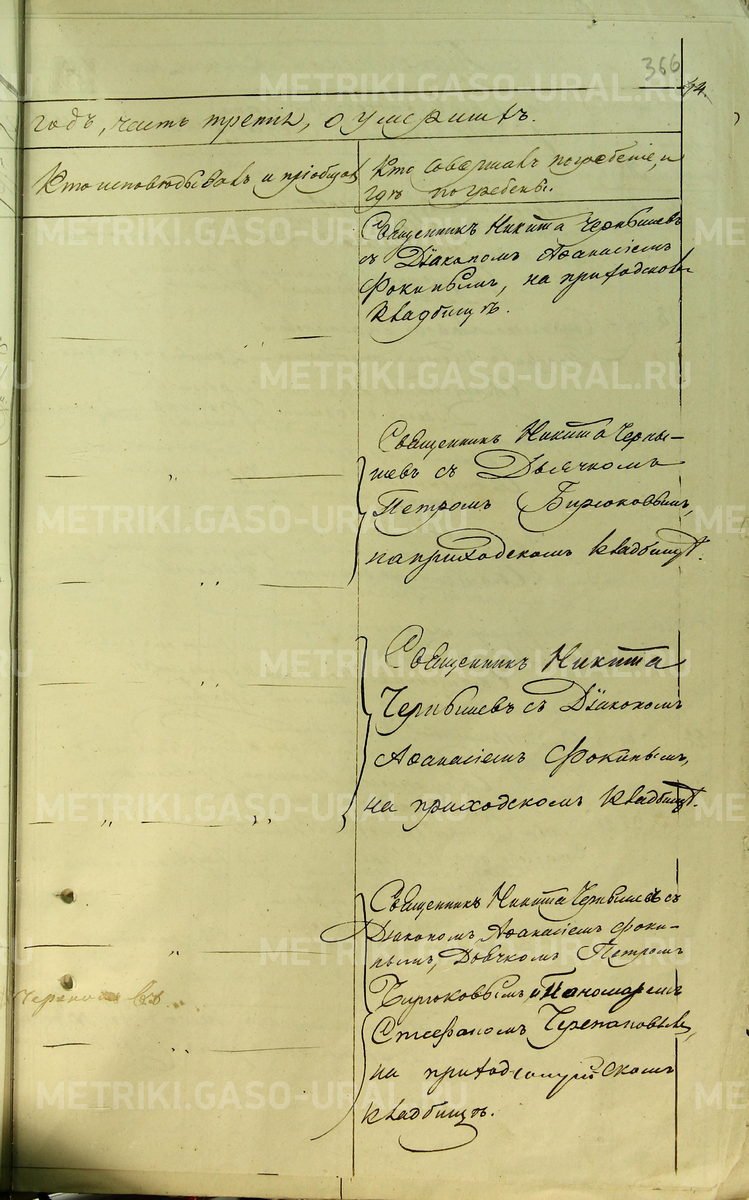 366
годъ, часть третія, о умершихъ.
Кто исповѣдывалъ и пріобщалъ
Кто совершалъ погребеніе, и
гдѣ погребены.
Священникъ Никита Чернышевъ
съ Діакономъ Аѳанасіемъ
Фокинымъ, на приходскомъ
кладбищѣ.
Священникъ Никита Черны-
шевъ съ Дьячкомъ
Петромъ Бирюковымъ,
на приходскомъ кладбищѣ.
Священникъ Никита
Чернышевъ съ Діакономъ
Аѳанасіемъ Фокинымъ,
на приходскомъ кладбищѣ.
Священникъ Никита Чернышевъ съ
Діакономъ Аѳанасіемъ Фоки-
нымъ, Дьячкомъ Петромъ
Бирюковымъ, и Пономаремъ
Стефаномъ Черепановымъ,
на приходскомъ
кладбищѣ.
METRIKI.GASO-URAL.RU